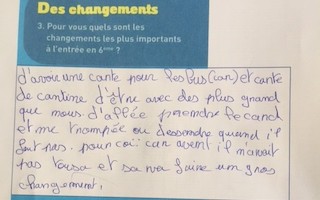 Des changements
3. Pour vous quels sont les
changements les plus importants
à l'entrée en 6ème ?
d'avoir une carte pour les bus (car) et carte
de cantine d'être avec des plus grand
que nous. d'allée prendre le car
et me trompée ou dessendre quand il
faut pas. pour coi car avent il n'avait
pas tousa et sa va faire un gros
changement.